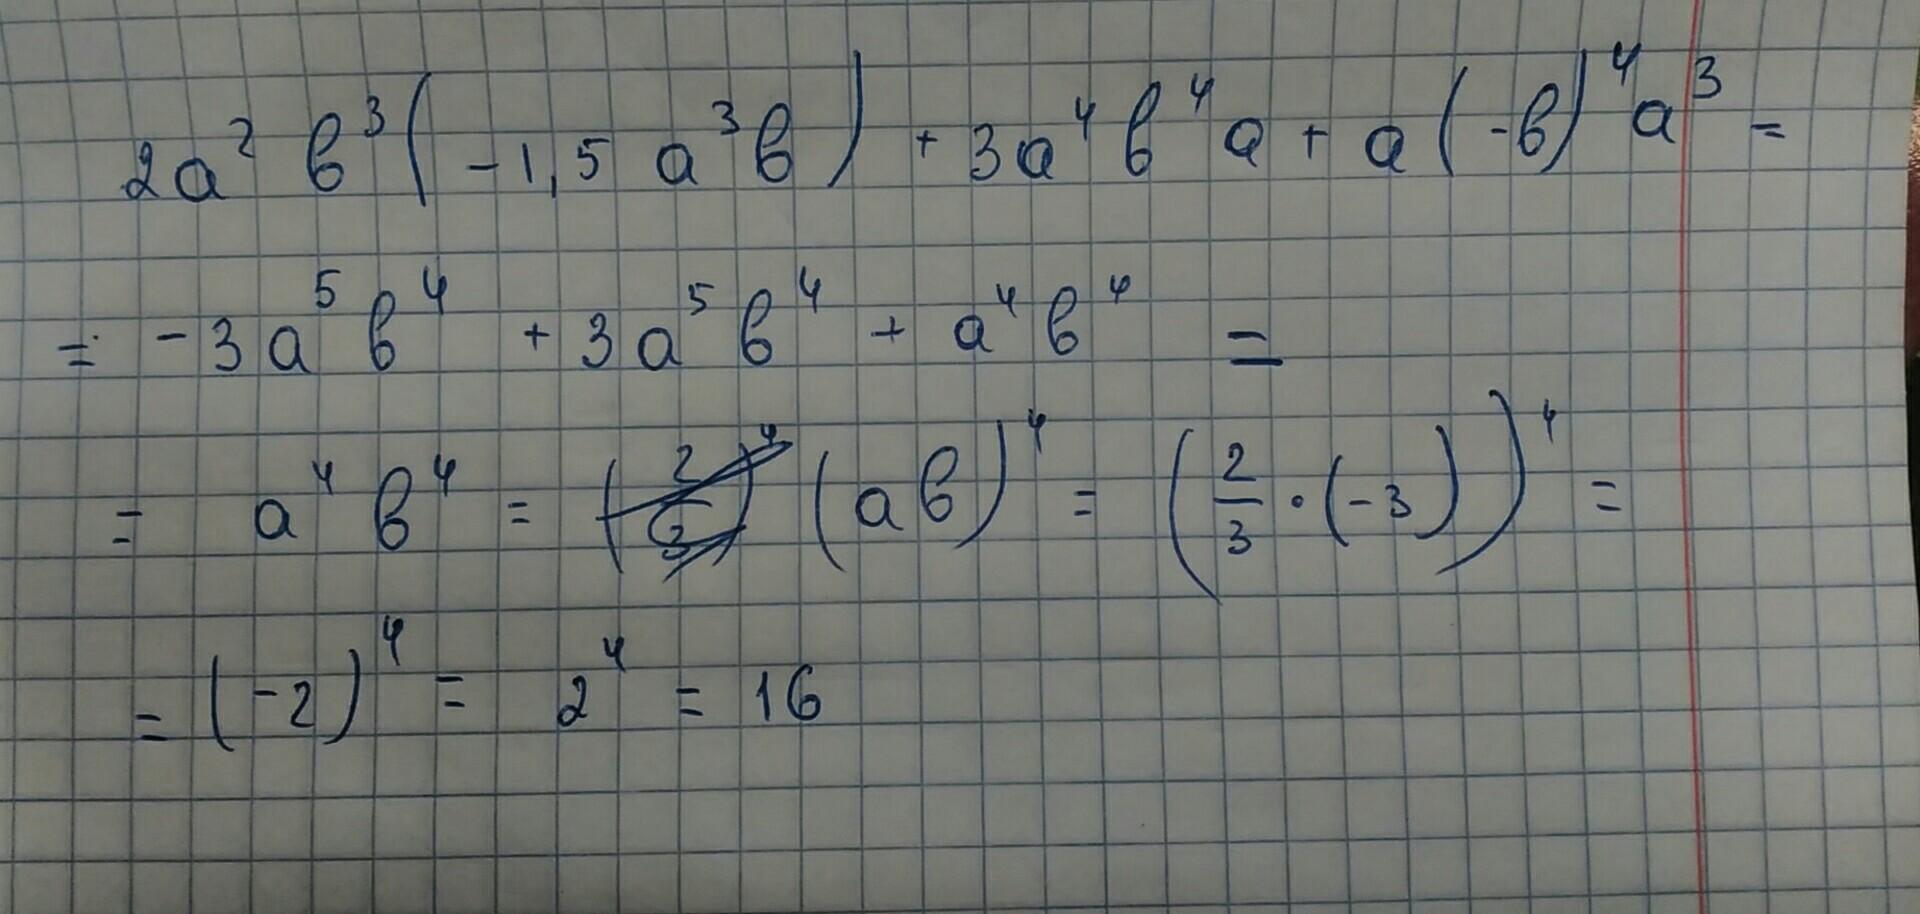 2a² b³(-1,5 a³b) + 3a⁴b⁴a + a(-b)⁴a³ =
= -3a⁵b⁴ + 3a⁵b⁴ + a⁴b⁴ =
= a⁴b⁴ = (2/3)⁴ (ab)⁴ = (2/3 · (-3))⁴ =
= (-2)⁴ = 2⁴ = 16